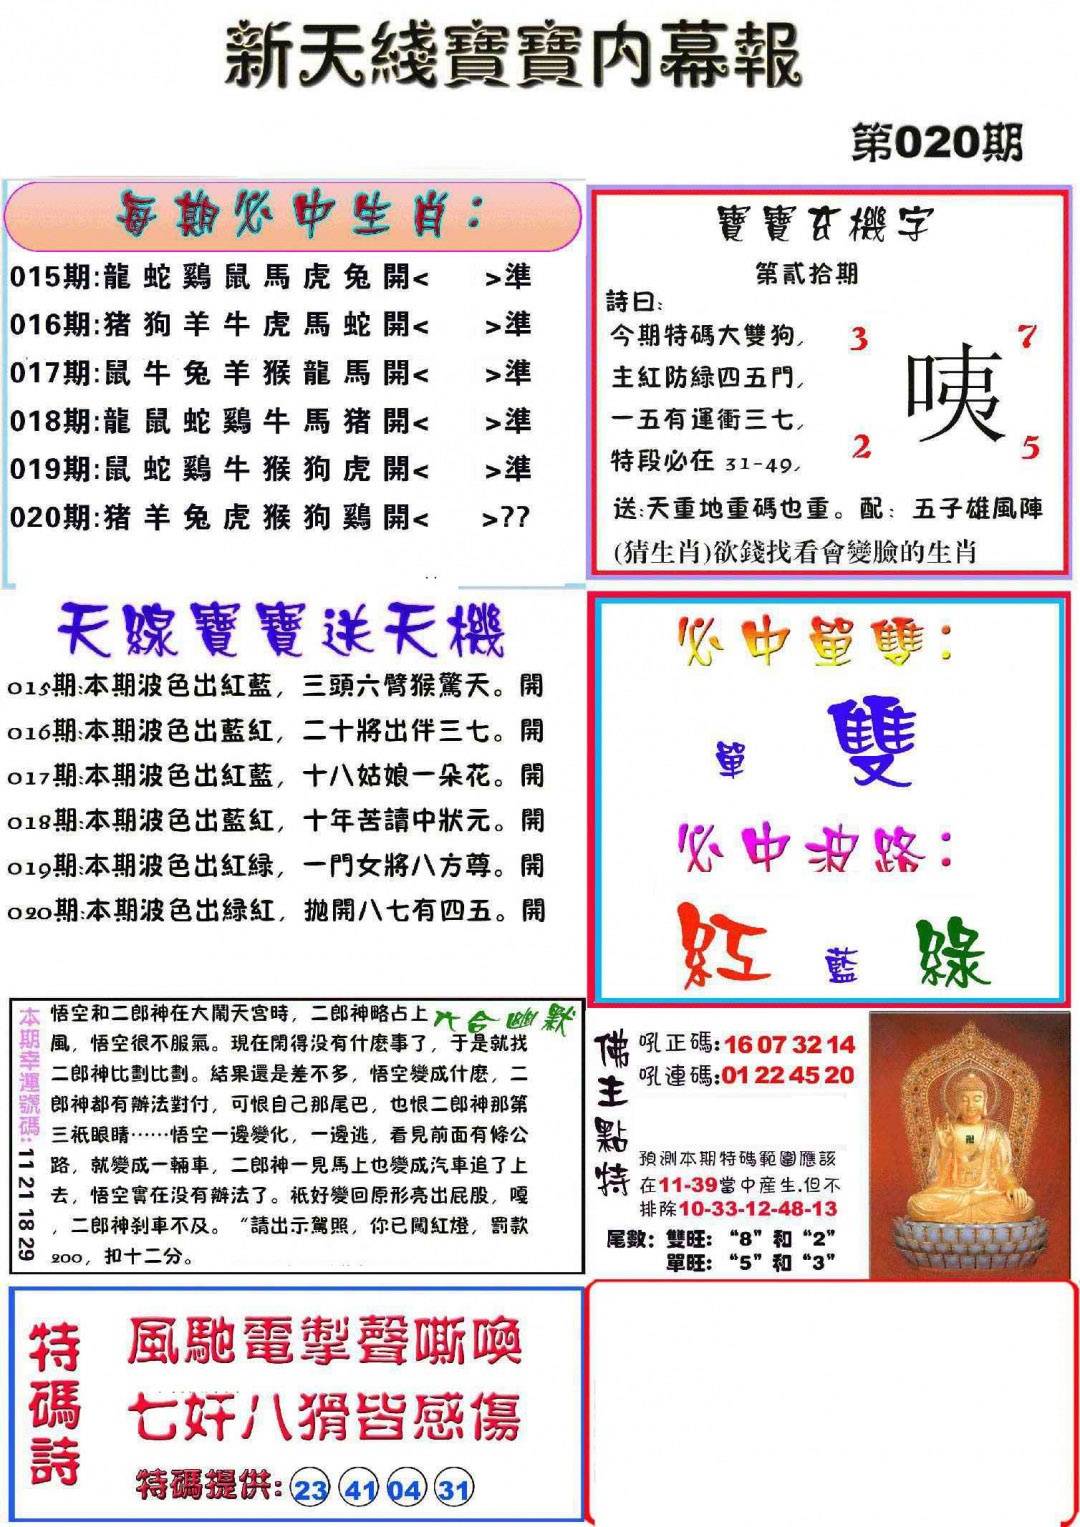 新天綫寶寶内幕報
第020期
每期必中生肖:
015期:龍蛇鷄鼠馬虎兔開< >準
016期:猪狗羊牛虎馬蛇開< >準
017期:鼠牛兔羊猴龍馬開< >準
018期:龍鼠蛇鷄牛馬猪開< >準
019期:鼠蛇鷄牛猴狗虎開< >準
020期:猪羊兔虎猴狗鷄開< >??
寶寶玄機字
第貳拾期
詩曰:
今期特碼大雙狗,
主紅防緑四五門,
一五有運衝三七,
特段必在 31-49,
3 7
咦
2 5
送:天重地重碼也重。配：五子雄風陣
(猜生肖)欲錢找看會變臉的生肖
天線寶寶送天機
015期:本期波色出紅藍，三頭六臂猴驚天。開
016期:本期波色出藍紅，二十將出伴三七。開
017期:本期波色出紅藍，十八姑娘一朵花。開
018期:本期波色出藍紅，十年苦讀中狀元。開
019期:本期波色出紅緑，一門女將八方尊。開
020期:本期波色出緑紅，抛開八七有四五。開
必中單雙:
單 雙
必中波路:
紅 藍 綠
本期幸運號碼: 11 21 18 29
六合幽默
悟空和二郎神在大鬧天宮時，二郎神略占上
風，悟空很不服氣。現在閑得没有什麽事了，于是就找
二郎神比劃比劃。結果還是差不多，悟空變成什麽，二
郎神都有辦法對付，可恨自己那尾巴，也恨二郎神那第
三衹眼睛……悟空一邊變化，一邊逃，看見前面有條公
路，就變成一輛車，二郎神一見馬上也變成汽車追了上
去，悟空實在没有辦法了。衹好變回原形亮出屁股，嘎
，二郎神刹車不及。“請出示駕照，你已闖紅燈，罰款
200，扣十二分。
佛主點特
吼正碼:16 07 32 14
吼連碼:01 22 45 20
預測本期特碼範圍應該
在11-39當中産生.但不
排除10-33-12-48-13
尾數：雙旺：“8”和“2”
單旺：“5”和“3”
特碼詩
風馳電掣聲嘶喚
七奸八猾皆感傷
特碼提供: 23 41 04 31